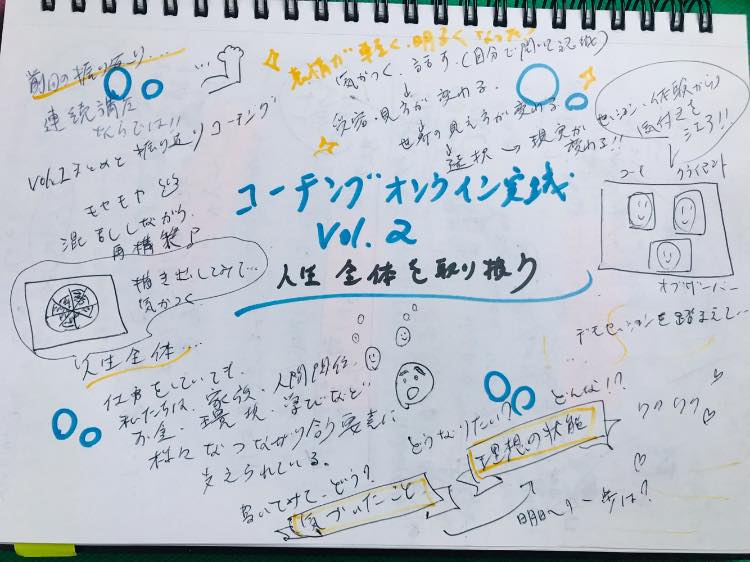 前回の振り返り....
連続講座
ならでは!!
vol.1まとめと振り返りコーチング
モヤモヤ
混乱しながら、
再構築♪
描き出してみて...
気がつく
表情が軽く、明るくなった!
気がつく、話す。(自分で聞いて認
受容・見方が変わる。
世界の見え方が変わる。
選択→現実が
変わる!!
セッション・体験から
気付きを
シェア!!
コーチ
クライエント
オブザーバー
コーチングオンライン実践
Vol.2
人生全体を取り扱う
デモセッションを踏まえて...
人生全体....
仕事をしていても、
私たちは、家族、人間関係、
お金、環境、学びなど
様々なつながり合う要素に
支えられている。
どうなりたい?
どんな!?
理想の状態
ワクワク
書いてみて、どう?
気づいたこと
明日へ 一歩は?